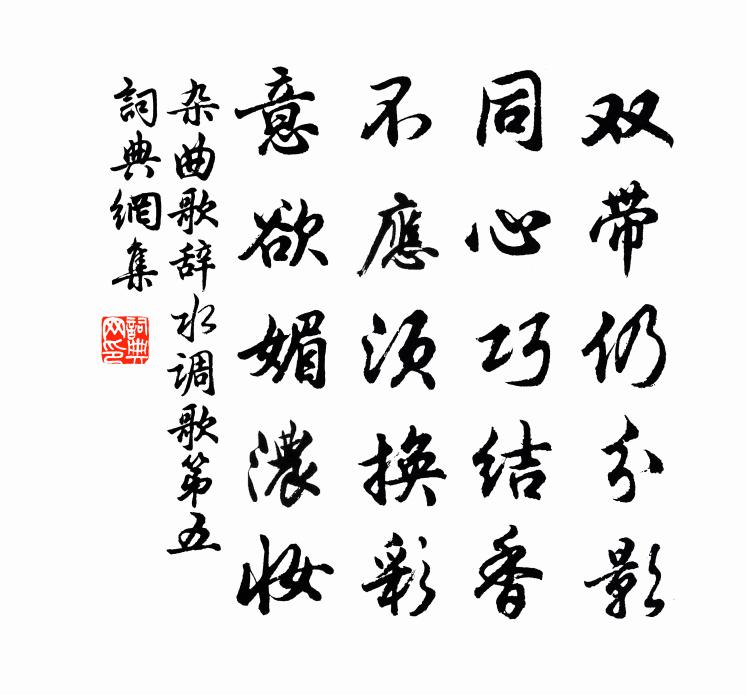 双带仍分影
同心巧结香
不應须换彩
意欲媚濃妆
杂曲歌辞水调歌第五
詞典網集
詞典网印